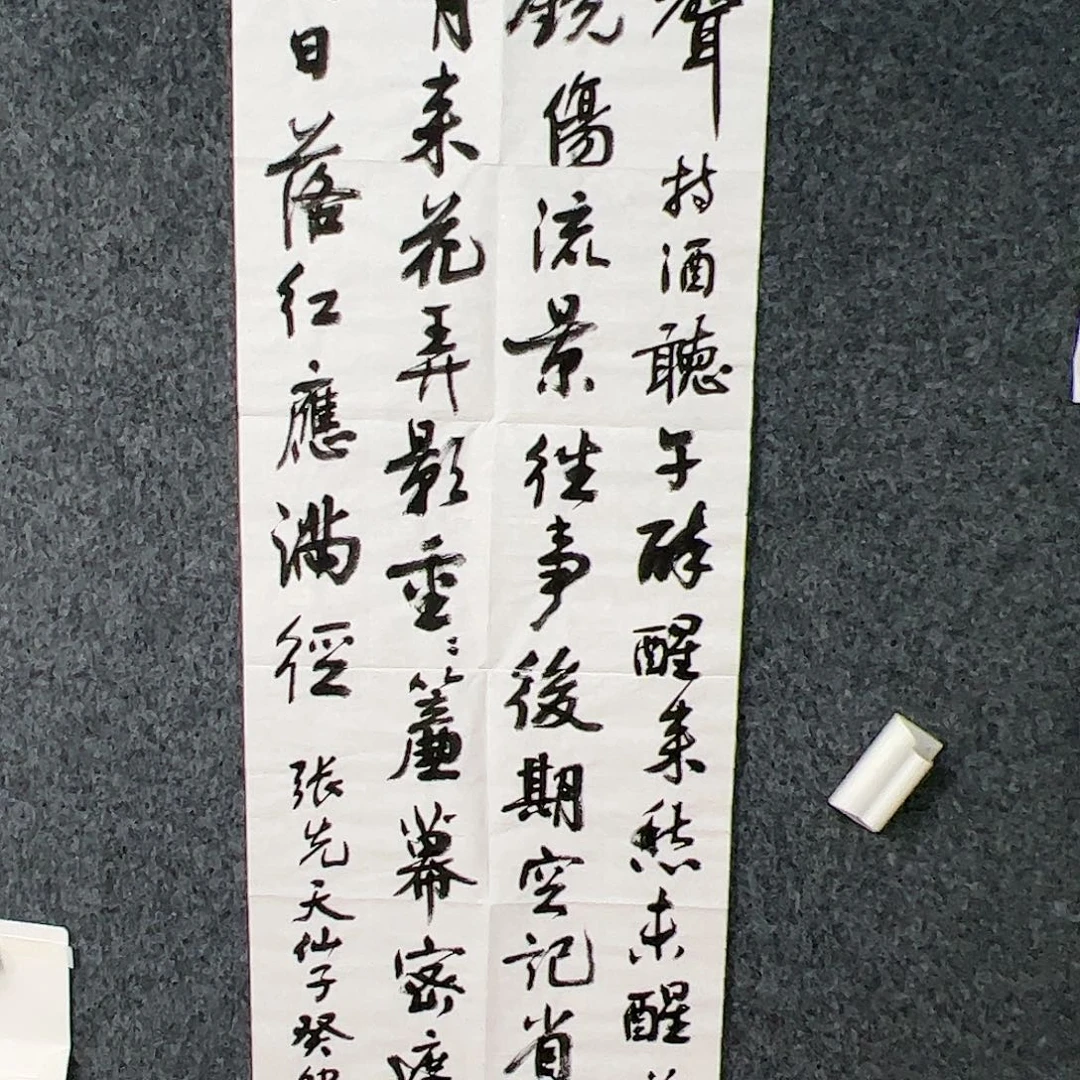 聲持酒聽午醉醒来愁未醒
鏡傷流景往事後期空記省
月来花弄影重〻簾幕密遮
日落紅應滿徑張先天仙子癸卯